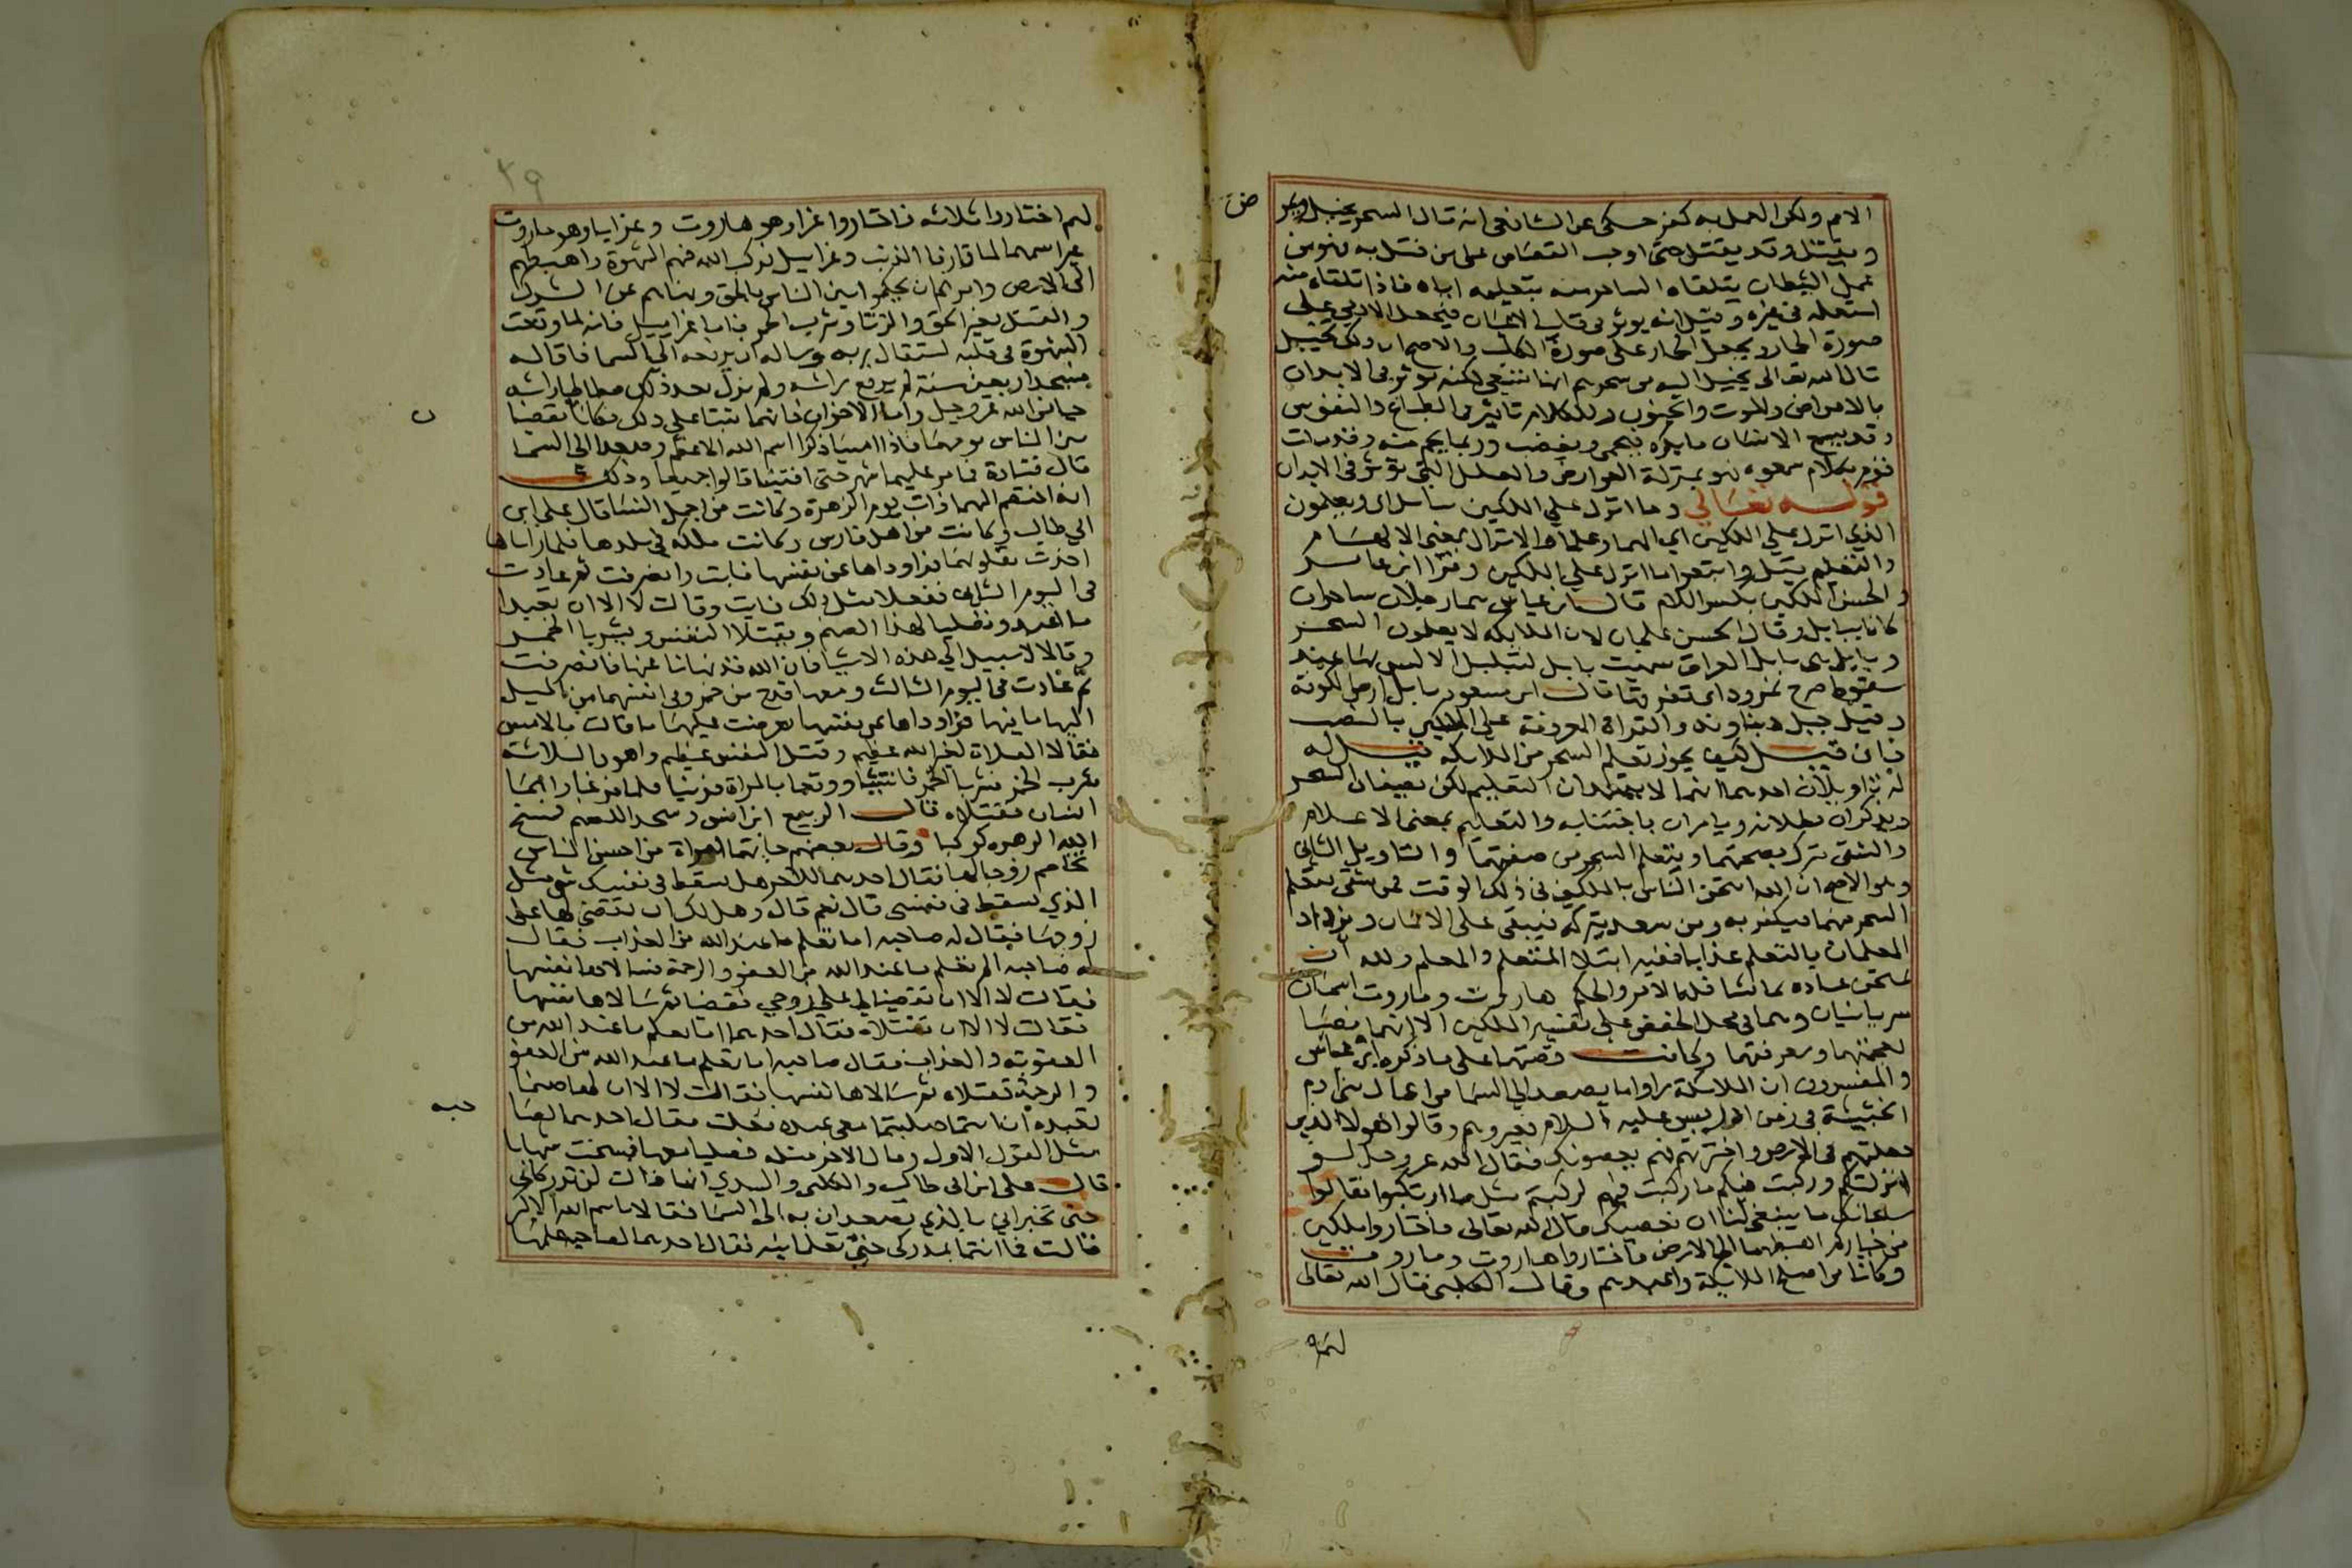 الامم ولكن العمل به كفر حكى عن الشافعي انه قال السحر يخيل ويمرض
ويقتل وقد يقتل حتى اوجب القصاص على من قتل به فهو من
عمل الشيطان يتلقاه الساحر منه بتعليمه اياه فاذا تلقاه منه
استعمله في غيره وقيل انه يوثر في قلب الاعيان فيجعل الادمي على
صورة الحمار ويجعل الحمار على صورة الكلب والاصح ان ذلك تخييل
قال الله تعالى يخيل اليه من سحرهم انها تسعى لكنه يوثر في الابدان
بالامراض والموت والجنون وللكلام تاثير في الطباع والنفوس
وقد يسمع الانسان ما يكره فيحمى ويغضب وربما يحم منه وقد مات
قوم بكلام سمعوه فهو بمنزلة العوارض والعلل التي توثر في الابدان
قوله تعالى وما انزل على الملكين ببابل اي ويعلمون
الذي انزل على الملكين اي الهما وعلما والانزال بمعنى الالهام
والتعليم وقيل واتبعوا ما انزل على الملكين وقرا ابن عباس
والحسن الملكين بكسر اللام قال ابن عباس هما رجلان ساحران
كانا ببابل وقال الحسن علجان لان الملايكة لا يعلمون السحر
وبابل هي بابل العراق سميت بابل لتبلبل الالسن بها عند
سقوط صرح نمرود اي تفرقها قال ابن مسعود بابل ارض الكوفة
وقيل جبل دماوند والقراة المعروفة على الملكين بالنصب
فان قيل كيف يجوز تعليم السحر من الملايكة قيل له
له تاويلان احدهما انهما لا يتعمدان التعليم لكن يصفان السحر
ويذكران بطلانه ويامران باجتنابه والتعليم بمعنى الاعلام
والشقي يترك نصيحتهما ويتعلم السحر من صنعتهما والتاويل الثاني
وهو الاصح ان الله امتحن الناس بالملكين في ذلك الوقت فمن شقي يتعلم
السحر منهما فيكفر به ومن سعد يتركه فيبقى على الايمان ويزداد
المعلمان بالتعليم عذابا ففيه ابتلا المتعلم والمعلم ولله ان
يمتحن عباده بما يشا فله الامر والحكم هاروت وماروت اسمان
سريانيان وهما في محل الخفض على تفسير الملكين الا انهما نصبا
لعجمتهما ومعرفتهما وكانت قصتهما على ما ذكره ابن عباس
والمفسرون ان الملائكة راوا ما يصعد الى السما من اعمال بني ادم
الخبيثة في زمن ادريس عليه السلام فعيروهم وقالوا هولا الذين
جعلتهم في الارض واخترتهم فهم يعصونك فقال الله عز وجل لو
انزلتكم وركبت فيكم ما ركبت فيهم لركبتم مثل ما ارتكبوا فقالوا
سبحانك ما ينبغي لنا ان نعصيك قال الله تعالى فاختاروا ملكين
من خياركم اهبطهما الى الارض فاختاروا هاروت وماروت
وكانا من اصلح الملايكة واعبدهم وقال الكلبي فقال الله تعالى
لهم
٢٩
لهم اختاروا ثلاثه فاختاروا عزا وهو هاروت وعزايا وهو ماروت
غير اسمهما لما قارفا الذنب وعزاييل فركب الله فيهم الشهوة واهبطهم
الى الارض وامرهم ان يحكموا بين الناس بالحق ونهاهم عن الشرك
والقتل بغير الحق والزنا وشرب الخمر فاما عزاييل فانه لما وقعت
الشهوة في قلبه استقال ربه وساله ان يرفعه الى السما فاقاله
فسجد اربعين سنة لم يرفع راسه ولم يزل بعد ذلك مطاطيا راسه
حيا من الله عز وجل واما الاخران فانهما ثبتا على ذلك فكانا يقضيان
بين الناس يومهما فاذا امسيا ذكرا اسم الله الاعظم وصعدا الى السما
قال قتادة فما مر عليهما شهر حتى افتتنا قالوا جميعا وذلك
انه اختصم اليهما ذات يوم الزهرة وكانت من اجمل النسا قال علي ابن
ابي طالب وكانت من اهل فارس وكانت ملكة في بلدها فلما راياها
اخذت بقلوبهما فراوداها عن نفسها فابت وانصرفت ثم عادت
في اليوم الثاني ففعلا مثل ذلك فابت وقالت لا الا ان تعبدا
ما اعبد وتصليا لهذا الصنم وتقتلا النفس وتشربا الخمر
وقالا لا سبيل الى هذه الاشيا فان الله قد نهانا عنها فانصرفت
ثم عادت في اليوم الثالث ومعها قدح من خمر وفي انفسهما من الميل
اليها ما فيها فراوداها عن نفسها فعرضت عليهما ما قالت بالامس
فقالا الصلاة لغير الله عظيم وقتل النفس عظيم واهون الثلاثة
شرب الخمر فشربا الخمر فانتشيا ووقعا بالمراة فزنيا فلما فرغا راهما
انسان فقتلاه قال الربيع ابن انس وسجدا للصنم فمسخ
الله الزهره كوكبا وقال بعضهم جاتهما امراة من احسن الناس
تخاصم زوجا لها فقال احدهما للاخر هل سقط في نفسك شي مثل
الذي سقط في نفسي قال نعم قال وهل لك ان تقضي لها على
زوجها فقال له صاحبه اما تعلم ما عند الله من العذاب فقال
له صاحبه الم تعلم ما عند الله من العفو والرحمة فسالاها نفسها
فقالت لا الا ان تقضيا لي على زوجي فقضيا ثم سالاها نفسها
فقالت لا الا ان تقتلاه فقال احدهما اما تعلم ما عند الله من
العقوبة والعذاب فقال صاحبه اما تعلم ما عند الله من العفو
والرحمة فقتلاه ثم سالاها نفسها فقالت لا الا ان لها صنما
تعبده ان انتما صليتما معي عنده فعلت فقال احدهما لصا
حبه
مثل القول الاول وقال الاخر مثله فصليا معها فمسخت شهابا
قال علي ابن ابي طالب والكلبي والسدي انها قالت لن تدركاني
حتى تخبراني بالذي تصعدان به الى السما فقالا باسم الله الاكبر
قالت فما انتما بمدركي حتى تعلمانيه فقال احدهما لصاحبه علمها